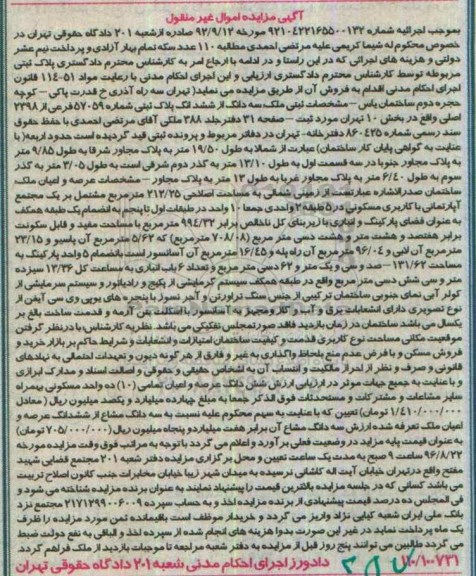 آگهی مزایده اموال غیر منقول
بموجب اجرائیه شماره 9210422165500132 مورخه 92/9/12 صادره از شعبه 201 دادگاه حقوقی تهران در
خصوص محکوم له شیما کریمی علیه مرتضی احمدی مطالبه 110 عدد سکه تمام بهار آزادی و پرداخت نیم عشر
دولتی و هزینه های اجرائی که در این راستا و در ادامه با ارجاع امر به کارشناس محترم دادگستری پلاک ثبتی
مربوطه توسط کارشناس محترم دادگستری ارزیابی و این اجرای احکام مدنی با رعایت مواد 51-114 قانون
اجرای احکام مدنی اقدام به فروش آن از طریق مزایده می نماید( تهران سه راه آذری خ قدرت پاکی – کوچه
حجره دوم ساختمان یاس – مشخصات ثبتی ملک سه دانگ از ششدانگ پلاک ثبتی شماره 57059 فرعی از 2398
اصلی واقع در بخش 10 تهران مورد ثبت – صفحه 31 دفتر جلد 388 ملکی آقای مرتضی احمدی با حفظ حقوق
سند رسمی شماره 860425 دفترخانه- تهران در دفاتر مربوط و پرونده ثبتی قید گردیده است حدود اربعه( با
عنایت به گواهی پایان کار ساختمان) عبارت از شمالا به طول 19/50 متر به پلاک مجاور شرقا به طول 9/85 متر
به پلاک مجاور جنوبا در سه قسمت اول به طول 13/10 متر به گذر دوم شرقی است به طول 3/05 متر به گذر
سوم به طول 6/40 متر به پلاک مجاور غربا به طول 13 متر به پلاک مجاور – مشخصات عرصه و اعیان ملک:
ساختمان صدرالاشاره عبارتست از زمینی شمالی به مساحت اصلاحی 212/35 مترمربع مشتمل بر یک مجتمع
آپارتمانی با کاربری مسکونی در 5 طبقه 2 واحدی جمعا 10 واحد در طبقات اول تا پنجم به انضمام یک طبقه همکف
به عنوان فضای پارکینگ و انباری با زیربنای کل ناخالص برابر 994/33 مترمربع با مساحت مفید و قابل سکونت
برابر هفتصد و هشت متر و هشت دسی متر مربع (708/08 مترمربع) که 5/63 مترمربع آن پاسیو و 23/15
مترمربع آن لابی و 96/04 مترمربع آن راه پله و 16/45 مترمربع آن آسانسور است بانضمام 5 واحد پارکینگ به
مساحت 131/63- صد و سی و یک متر و 63 دسی متر مربع و تعداد 6 باب انباری به مساحت کل 13/36 سیزده
متر و سی شش دسی متر مربع واقع در طبقه همکف سیستم گرمایشی از پکیج و رادیاتور و سیستم سرمایشی از
کولر آبی نمای جنوبی ساختمان ترکیبی از جنس سنگ تراورتن و آجر نسوز با پنجره های یوپی وی سی آیفن از
نوع تصویری دارای انشعابات برق و آب و گاز و مجهز به آسانسور با اسکلت بتن آرمه و قدمت ساخت بالغ بر
یکسال می باشد ساختمان در زمان بازدید فاقد صورتمجلس تفکیکی می باشد. نظریه کارشناس: با در نظر گرفتن
موقعیت مکانی مساحت نوع کاربری قدمت و کیفیت ساختمان امتیازات و انشعابات و شرایط حاکم بر بازار خرید و
فروش مسکن و با فرض عدم منع بلحاظ واگذاری به غیر و فارق از هر گونه دیون و تعهدات احتمالی به نهادهای
قانونی و صرف و نظر از احراز مالکیت و انتساب آن به اشخاص حقیقی و حقوقی و اصالت اسناد و مدارک ابرازی
و با عنایت به جمیع جهات موثر در ارزیابی ارزش شش دانگ عرصه و اعیان تمامی (10) ده واحد مسکونی بهمراه
سایر مشاعات و مشترکات و مستحدثات فوق الذکر جمعا به مبلغ چهارده میلیارد و یکصد میلیون ریال ( معادل
1/410/000/000 تومان) تعیین که با عنایت به سهم محکوم علیه نسبت به سه دانگ مشاع از ششدانگ عرصه و
اعیان ملک تعرفه شده ارزش سه دانگ مشاع آن برابر هفت میلیارد و پنجاه میلیون ریال (705/000/000 تومان)
به عنوان قیمت پایه مزاید در وضعیت فعلی برآورد و اعلام می گردد با توجه به مراتب فوق وقت مزایده مورخه
96/8/22 ساعت 9 صبح به مدت یک ساعت تعیین و محل برگزاری مزایده دفتر شعبه 201 مجتمع قضایی شهید
مفتح واقع در تهران خیابان آیت اله کاشانی نرسیده به میدان شهر زیبا خیابان مخابرات جنب کانون اصلاح تربیت
می باشد کسانی که در جلسه مزایده بالاترین قیمت را پیشنهاد نمایند به عنوان برنده مزایده شناخته می شود و
فی المجلس ده درصد قیمت پیشنهادی از برنده مزایده اخذ و به حساب سپرده 2171299006009 مجتمع نزد
بانک ملی ایران شعبه کیایی نژاد واریز می گردد و خریدار موظف است باقیمانده ثمن مورد مزایده را ظرف
یک ماه پرداخت نماید در غیر این صورت بدوا هزینه های انجام شده از سپرده اخذ و الباقی به نفع دولت ضبط
می گردد طالبین می توانند پنج روز قبل از مزایده به دفتر شعبه مراجعه تا موجبات بازدید از ملک فراهم گردد.
110/100731 دادورز اجرای احکام مدنی شعبه 201 دادگاه حقوقی تهران